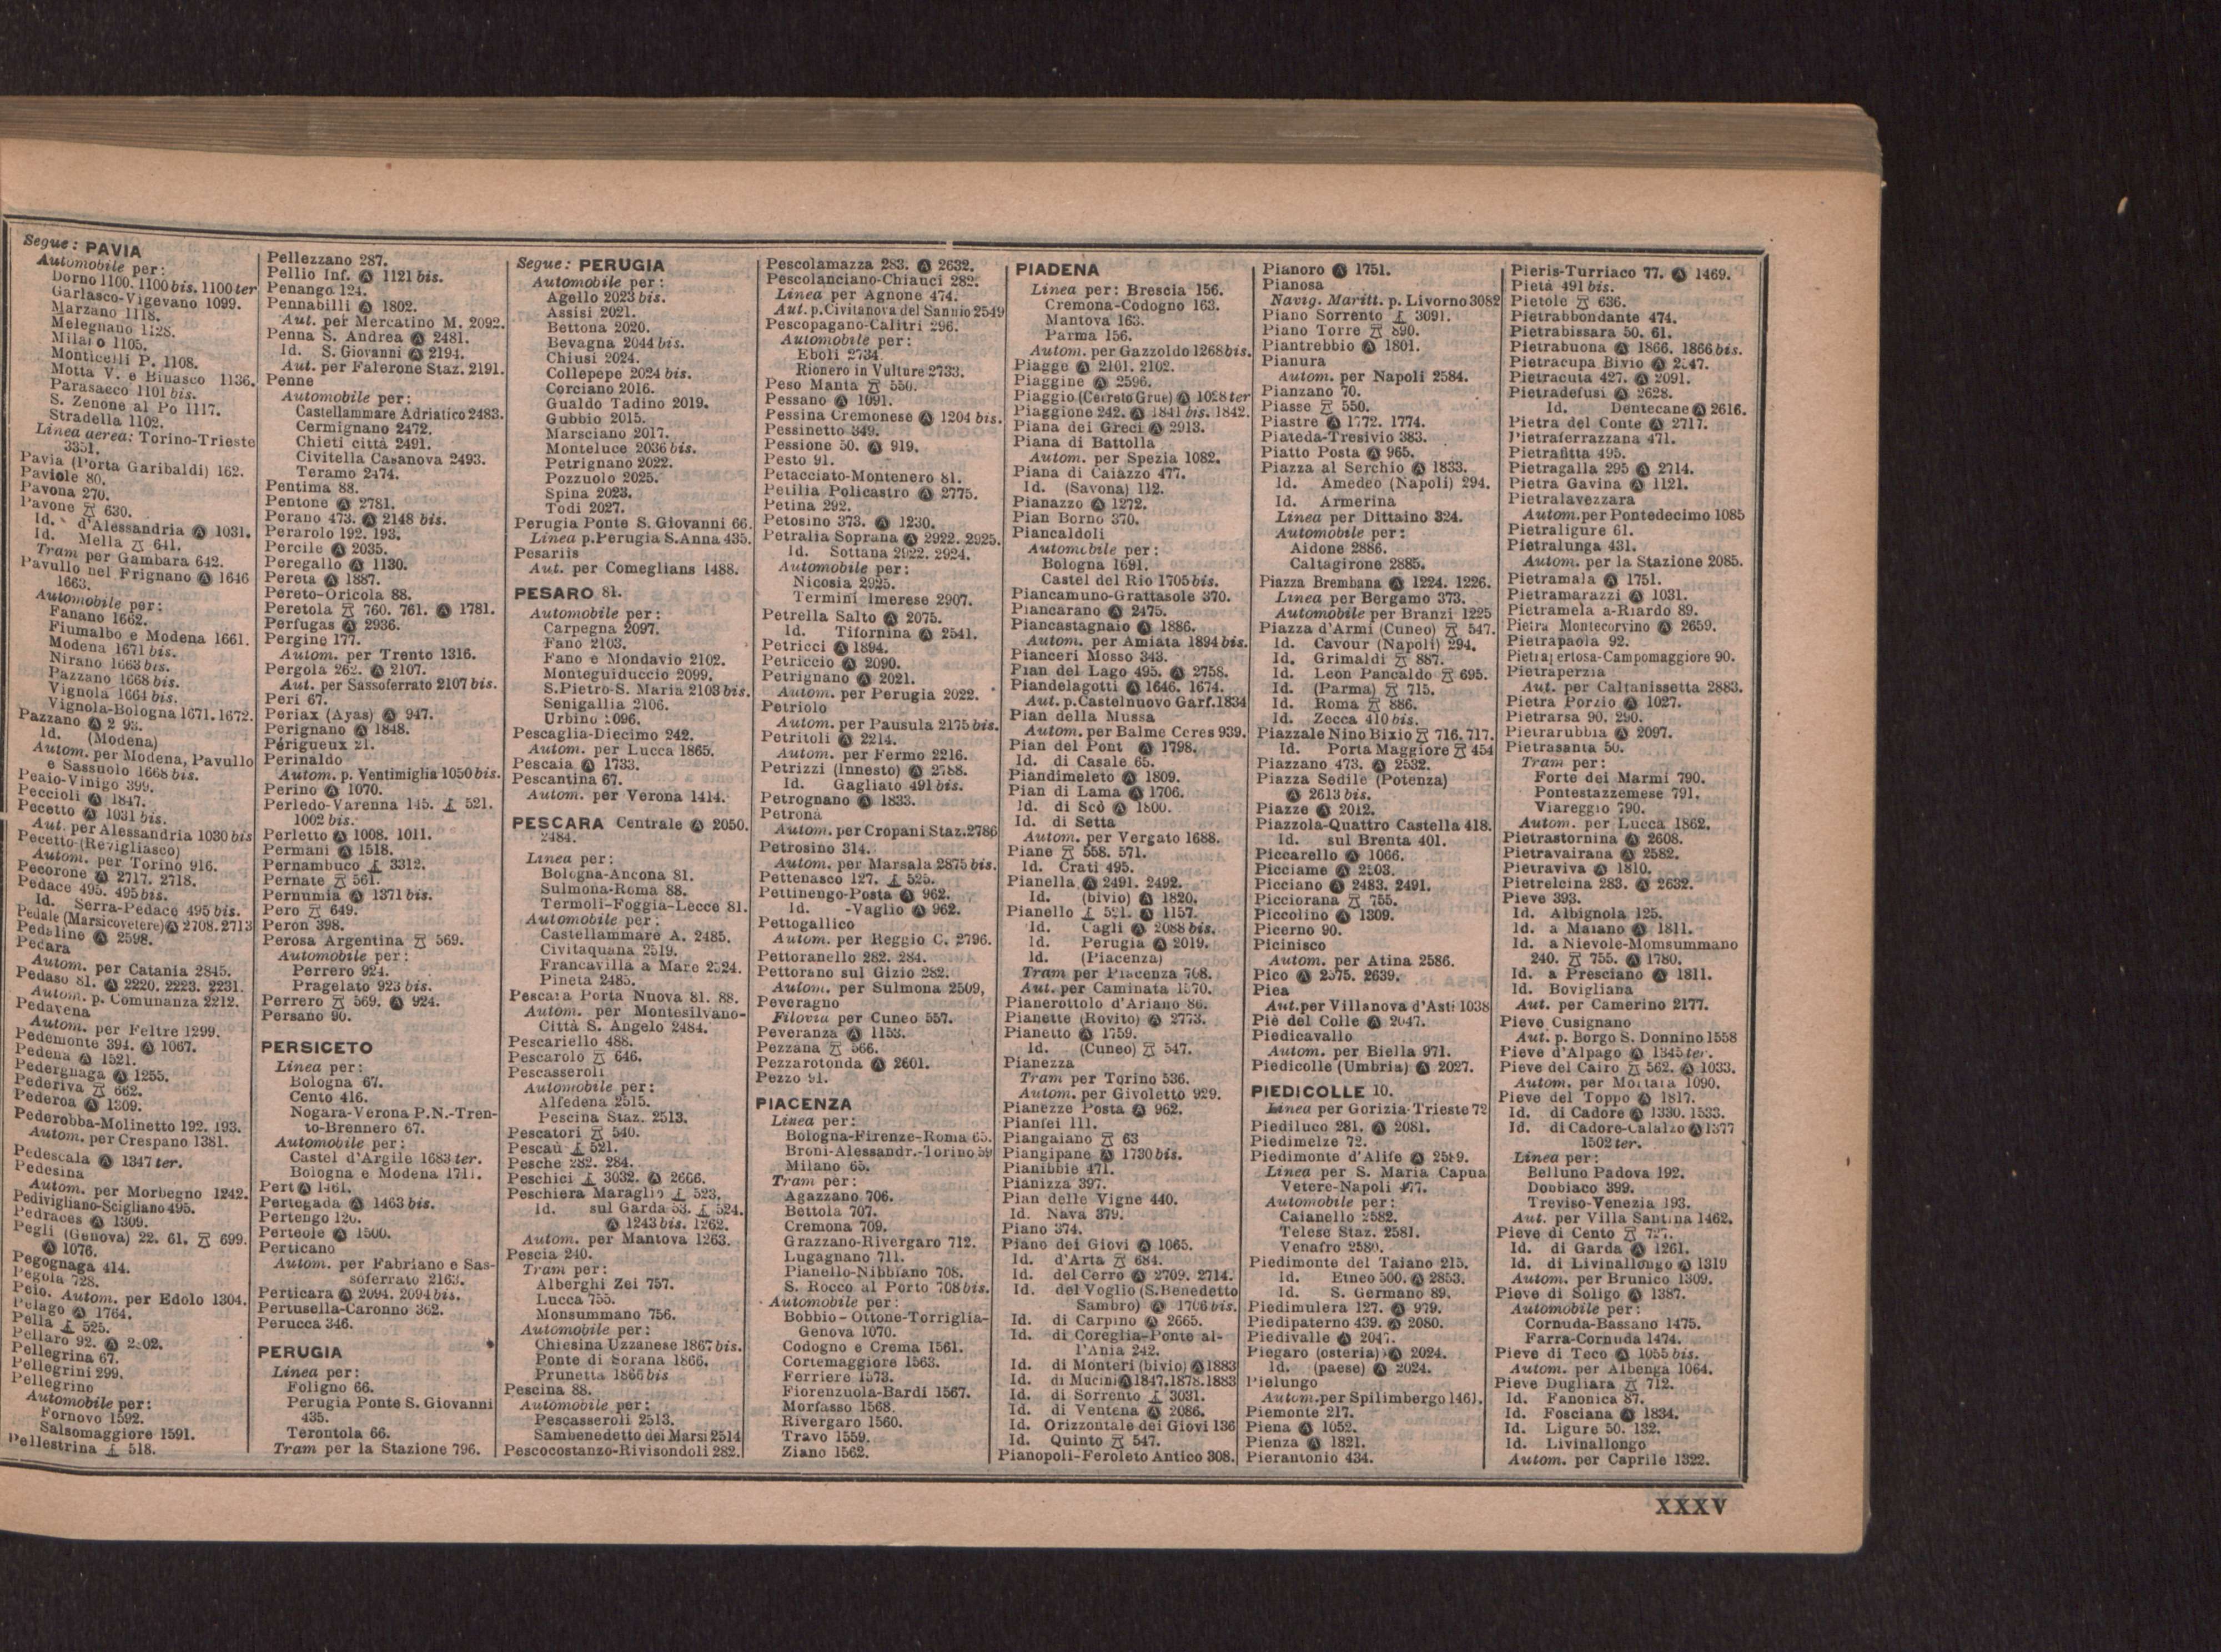 Segue: PAVIA
Automobile per:
Dorno 1100. 1100 bis. 1100 ter
Garlasco-Vigevano 1099.
Marzano 1118.
Melegnano 1128.
Milano 1105.
Monticelli P. 1108.
Motta V. e Binasco 1136.
Parasacco 1101 bis.
S. Zenone al Po 1117.
Stradella 1102.
Linea aerea: Torino-Trieste
3351.
Pavia (Porta Garibaldi) 162.
Paviole 80.
Pavona 270.
Pavone 630.
Id. d'Alessandria Ⓐ 1031.
Id. Mella 641.
Tram per Gambara 642.
Pavullo nel Frignano Ⓐ 1646
1663.
Automobile per:
Fanano 1662.
Fiumalbo e Modena 1661.
Modena 1671 bis.
Nirano 1663 bis.
Pazzano 1668 bis.
Vignola 1664 bis.
Vignola-Bologna 1671. 1672.
Pazzano Ⓐ
Id. (Modena)
Autom. per Modena, Pavullo
e Sassuolo 1668 bis.
Peaio-Vinigo 399.
Peccioli Ⓐ 1847.
Pecetto Ⓐ 1031 bis.
Aut. per Alessandria 1030 bis
Pecetto (Revigliasco)
Autom. per Torino 916.
Pecorone Ⓐ 2717. 2718.
Pedace 495. 495 bis.
Id. Serra-Pedace 495 bis.
Pedale (Marsicovetere) Ⓐ 2708. 2713
Pedaline Ⓐ 2598.
Pedara
Autom. per Catania 2845.
Pedaso 81. Ⓐ 2220. 2223. 2231.
Autom. p. Comunanza 2212.
Pedavena
Autom. per Feltre 1299.
Pedemonte 394. Ⓐ 1067.
Pedena Ⓐ 1521.
Pedergnaga Ⓐ 1255.
Pederiva 662.
Pederoa Ⓐ 1309.
Pederobba-Molinetto 192. 193.
Autom. per Crespano 1381.
Pedescala Ⓐ 1347 ter.
Pedesina
Autom. per Morbegno 1242.
Pedivigliano-Scigliano 495.
Pedraces Ⓐ 1309.
Pegli (Genova) 22. 61. 699.
Ⓐ 1076.
Pegognaga 414.
Pegola 728.
Peio. Autom. per Edolo 1304.
Pelago Ⓐ 1764.
Pella 525.
Pellaro 92. Ⓐ
Pellegrina 67.
Pellegrini 299.
Pellegrino
Automobile per:
Fornovo 1592.
Salsomaggiore 1591.
Pellestrina 518.
Pellezzano 287.
Pellio Inf. Ⓐ 1121 bis.
Penango 124.
Pennabilli Ⓐ 1802.
Aut. per Mercatino M. 2092.
Penna S. Andrea Ⓐ 2481.
Id. S. Giovanni Ⓐ 2194.
Aut. per Falerone Staz. 2191.
Penne
Automobile per:
Castellammare Adriatico 2483.
Cermignano 2472.
Chieti città 2491.
Civitella Casanova 2493.
Teramo 2474.
Pentima 88.
Pentone Ⓐ 2781.
Perano 473. Ⓐ 2148 bis.
Perarolo 192. 193.
Percile Ⓐ 2035.
Peregallo Ⓐ 1130.
Pereta Ⓐ 1887.
Pereto-Oricola 88.
Peretola 760. 761. Ⓐ 1781.
Perfugas Ⓐ 2936.
Pergine 177.
Autom. per Trento 1316.
Pergola 262. Ⓐ 2107.
Aut. per Sassoferrato 2107 bis.
Peri 67.
Periax (Ayas) Ⓐ 947.
Perignano Ⓐ 1848.
Périgueux 21.
Perinaldo
Autom. p. Ventimiglia 1050 bis.
Perino Ⓐ 1070.
Perledo-Varenna 145. 521.
1002 bis.
Perletto Ⓐ 1008. 1011.
Permani Ⓐ 1518.
Pernambuco 3312.
Pernate 561.
Pernumia Ⓐ 1371 bis.
Pero 649.
Peron 398.
Perosa Argentina 569.
Automobile per:
Perrero 924.
Pragelato 923 bis.
Perrero 569. Ⓐ 924.
Persano 90.
PERSICETO
Linea per:
Bologna 67.
Cento 416.
Nogara-Verona P.N.-Tren-
to-Brennero 67.
Automobile per:
Castel d'Argile 1683 ter.
Bologna e Modena 1711.
Pert Ⓐ 1461.
Pertegada Ⓐ 1463 bis.
Pertengo 126.
Perteole Ⓐ 1500.
Perticano
Autom. per Fabriano e Sas-
soferrato 2163.
Perticara Ⓐ 2094. 2094 bis.
Pertusella-Caronno 362.
Perucca 346.
PERUGIA
Linea per:
Foligno 66.
Perugia Ponte S. Giovanni
435.
Terontola 66.
Tram per la Stazione 796.
Segue: PERUGIA
Automobile per:
Agello 2023 bis.
Assisi 2021.
Bettona 2020.
Bevagna 2044 bis.
Chiusi 2024.
Collepepe 2024 bis.
Corciano 2016.
Gualdo Tadino 2019.
Gubbio 2015.
Marsciano 2017.
Monteluce 2036 bis.
Petrignano 2022.
Pozzuolo 2025.
Spina 2023.
Todi 2027.
Perugia Ponte S. Giovanni 66.
Linea p.Perugia S.Anna 435.
Pesariis
Aut. per Comeglians 1488.
PESARO 81.
Automobile per:
Carpegna 2097.
Fano 2103.
Fano e Mondavio 2102.
Monteguiduccio 2099.
S.Pietro-S. Maria 2103 bis.
Senigallia 2106.
Urbino 2096.
Pescaglia-Diecimo 242.
Autom. per Lucca 1865.
Pescaia Ⓐ 1733.
Pescantina 67.
Autom. per Verona 1414.
PESCARA Centrale Ⓐ 2050.
2484.
Linea per:
Bologna-Ancona 81.
Sulmona-Roma 88.
Termoli-Foggia-Lecce 81.
Automobile per:
Castellammare A. 2485.
Civitaquana 2519.
Francavilla a Mare 2524.
Pineta 2485.
Pescara Porta Nuova 81. 88.
Autom. per Montesilvano-
Città S. Angelo 2484.
Pescariello 488.
Pescarolo 646.
Pescasseroli
Automobile per:
Alfedena 2515.
Pescina Staz. 2513.
Pescatori 540.
Pescaù 521.
Pesche 282. 284.
Peschici 3032. Ⓐ 2666.
Peschiera Maraglio 523.
Id. sul Garda 53. 524.
Ⓐ 1243 bis. 1262.
Autom. per Mantova 1263.
Pescia 240.
Tram per:
Alberghi Zei 757.
Lucca 755.
Monsummano 756.
Automobile per:
Chiesina Uzzanese 1867 bis.
Ponte di Sorana 1866.
Prunetta 1866 bis
Pescina 88.
Automobile per:
Pescasseroli 2513.
Sambenedetto dei Marsi 2514
Pescocostanzo-Rivisondoli 282.
Pescolamazza 283. Ⓐ 2632.
Pescolanciano-Chiauci 282.
Linea per Agnone 474.
Aut. p.Civitanova del Sannio 2549
Pescopagano-Calitri 296.
Automobile per:
Eboli 2734.
Rionero in Vulture 2733.
Peso Manta 550.
Pessano Ⓐ 1091.
Pessina Cremonese Ⓐ 1204 bis.
Pessinetto 349.
Pessione 50. Ⓐ 919.
Pesto 91.
Petacciato-Montenero 81.
Petilia Policastro Ⓐ 2775.
Petina 292.
Petosino 373. Ⓐ 1230.
Petralia Soprana Ⓐ 2922. 2925.
Id. Sottana 2922. 2924.
Automobile per:
Nicosia 2925.
Termini Imerese 2907.
Petrella Salto Ⓐ 2075.
Id. Tifernina Ⓐ 2541.
Petricci Ⓐ 1894.
Petriccio Ⓐ 2090.
Petrignano Ⓐ 2021.
Autom. per Perugia 2022.
Petriolo
Autom. per Pausula 2175 bis.
Petritoli Ⓐ 2214.
Autom. per Fermo 2216.
Petrizzi (Innesto) Ⓐ 2788.
Id. Gagliato 491 bis.
Petrognano Ⓐ 1833.
Petronà
Autom. per Cropani Staz.2786
Petrosino 314.
Autom. per Marsala 2875 bis.
Pettenasco 127. 525.
Pettinengo-Posta Ⓐ 962.
Id. -Vaglio Ⓐ 962.
Pettogallico
Autom. per Reggio C. 2796.
Pettoranello 282. 284.
Pettorano sul Gizio 282.
Autom. per Sulmona 2509,
Peveragno
Filovia per Cuneo 557.
Peveranza Ⓐ 1153.
Pezzana 566.
Pezzarotonda Ⓐ 2601.
Pezzo 91.
PIACENZA
Linea per:
Bologna-Firenze-Roma 65.
Broni-Alessandr.-Torino 59
Milano 65.
Tram per:
Agazzano 706.
Bettola 707.
Cremona 709.
Grazzano-Rivergaro 712.
Lugagnano 711.
Pianello-Nibbiano 708.
S. Rocco al Porto 708 bis.
Automobile per:
Bobbio-Ottone-Torriglia-
Genova 1070.
Codogno e Crema 1561.
Cortemaggiore 1563.
Ferriere 1573.
Fiorenzuola-Bardi 1567.
Morfasso 1568.
Rivergaro 1560.
Travo 1559.
Ziano 1562.
PIADENA
Linea per: Brescia 156.
Cremona-Codogno 163.
Mantova 163.
Parma 156.
Autom. per Gazzoldo 1268 bis.
Piagge Ⓐ 2101. 2102.
Piaggine Ⓐ 2596.
Piaggio (Cerreto Grue) Ⓐ 1028 ter
Piaggione 242. Ⓐ 1841 bis. 1842.
Piana dei Greci Ⓐ 2913.
Piana di Battolla
Autom. per Spezia 1082.
Piana di Caiazzo 477.
Id. (Savona) 112.
Pianazzo Ⓐ 1272.
Pian Borno 370.
Piancaldoli
Automobile per:
Bologna 1691.
Castel del Rio 1705 bis.
Piancamuno-Grattasole 370.
Piancarano Ⓐ 2475.
Piancastagnaio Ⓐ 1886.
Autom. per Amiata 1894 bis.
Pianceri Mosso 343.
Pian del Lago 495. Ⓐ 2758.
Piandelagotti Ⓐ 1646. 1674.
Aut. p.Castelnuovo Garf.1834
Pian della Mussa
Autom. per Balme Ceres 939.
Pian del Pont Ⓐ 1798.
Id. di Casale 65.
Piandimeleto Ⓐ 1809.
Pian di Lama Ⓐ 1706.
Id. di Scò Ⓐ 1800.
Id. di Setta
Autom. per Vergato 1688.
Piane 558. 571.
Id. Crati 495.
Pianella Ⓐ 2491. 2492.
Id. (bivio) Ⓐ 1820.
Pianello 521. Ⓐ 1157.
Id. Cagli Ⓐ 2088 bis.
Id. Perugia Ⓐ 2019.
Id. (Piacenza)
Tram per Piacenza 708.
Aut. per Caminata 1570.
Pianerottolo d'Ariano 86.
Pianette (Rovito) Ⓐ 2773.
Pianetto Ⓐ 1759.
Id. (Cuneo) 547.
Pianezza
Tram per Torino 536.
Autom. per Givoletto 929.
Pianezze Posta Ⓐ 962.
Pianfei 111.
Piangaiano 63
Piangipane Ⓐ 1730 bis.
Pianibbie 471.
Pianizza 397.
Pian delle Vigne 440.
Id. Nava 379.
Piano 374.
Piano dei Giovi Ⓐ 1065.
Id. d'Arta 684.
Id. del Cerro Ⓐ 2709. 2714.
Id. del Voglio (S.Benedetto
Sambro) Ⓐ 1706 bis.
Id. di Carpino Ⓐ 2665.
Id. di Coreglia-Ponte al-
l'Ania 242.
Id. di Monteri (bivio) Ⓐ 1883
Id. di Mucini Ⓐ 1847.1878.1883
Id. di Sorrento 3031.
Id. di Ventena Ⓐ 2086.
Id. Orizzontale dei Giovi 136
Id. Quinto 547.
Pianopoli-Feroleto Antico 308.
Pianoro Ⓐ 1751.
Pianosa
Navig. Maritt. p. Livorno 3082
Piano Sorrento 3091.
Piano Torre 890.
Piantrebbio Ⓐ 1801.
Pianura
Autom. per Napoli 2584.
Pianzano 70.
Piasse 550.
Piastre Ⓐ 1772. 1774.
Piateda-Tresivio 383.
Piatto Posta Ⓐ 965.
Piazza al Serchio Ⓐ 1833.
Id. Amedeo (Napoli) 294.
Id. Armerina
Linea per Dittaino 324.
Automobile per:
Aidone 2886.
Caltagirone 2885.
Piazza Brembana Ⓐ 1224. 1226.
Linea per Bergamo 373.
Automobile per Branzi 1225
Piazza d'Armi (Cuneo) 547.
Id. Cavour (Napoli) 294.
Id. Grimaldi 887.
Id. Leon Pancaldo 695.
Id. (Parma) 715.
Id. Roma 886.
Id. Zecca 410 bis.
Piazzale Nino Bixio 716. 717.
Id. Porta Maggiore 454
Piazzano 473. Ⓐ 2532.
Piazza Sedile (Potenza)
Ⓐ 2613 bis.
Piazze Ⓐ 2012.
Piazzola-Quattro Castella 418.
Id. sul Brenta 401.
Piccarello Ⓐ 1066.
Picciame Ⓐ 2503.
Picciano Ⓐ 2483. 2491.
Picciorana 755.
Piccolino Ⓐ 1309.
Picerno 90.
Picinisco
Autom. per Atina 2586.
Pico Ⓐ 2575. 2639.
Piea
Aut.per Villanova d'Asti 1038
Piè del Colle Ⓐ 2047.
Piedicavallo
Autom. per Biella 971.
Piedicolle (Umbria) Ⓐ 2027.
PIEDICOLLE 10.
Linea per Gorizia-Trieste 72
Piediluco 281. Ⓐ 2081.
Piedimelze 72.
Piedimonte d'Alife Ⓐ 2589.
Linea per S. Maria Capua
Vetere-Napoli 477.
Automobile per:
Caianello 2582.
Telese Staz. 2581.
Venafro 2580.
Piedimonte del Taiano 215.
Id. Etneo 500. Ⓐ 2853.
Id. S. Germano 89.
Piedimulera 127. Ⓐ 979.
Piedipaterno 439. Ⓐ 2080.
Piedivalle Ⓐ 2047.
Piegaro (osteria) Ⓐ 2024.
Id. (paese) Ⓐ 2024.
Pielungo
Autom.per Spilimbergo 1461.
Piemonte 217.
Piena Ⓐ 1052.
Pienza Ⓐ 1821.
Pierantonio 434.
Pieris-Turriaco 77. Ⓐ 1469.
Pietà 491 bis.
Pietole 636.
Pietrabbondante 474.
Pietrabissara 50. 61.
Pietrabuona Ⓐ 1866. 1866 bis.
Pietracupa Bivio Ⓐ 2547.
Pietracuta 427. Ⓐ 2091.
Pietradefusi Ⓐ 2628.
Id. Dentecane Ⓐ 2616.
Pietra del Conte Ⓐ 2717.
Pietraferrazzana 471.
Pietrafitta 495.
Pietragalla 295 Ⓐ 2714.
Pietra Gavina Ⓐ 1121.
Pietralavezzara
Autom.per Pontedecimo 1085
Pietraligure 61.
Pietralunga 431.
Autom. per la Stazione 2085.
Pietramala Ⓐ 1751.
Pietramarazzi Ⓐ 1031.
Pietramela a-Riardo 89.
Pietra Montecorvino Ⓐ 2659.
Pietrapaola 92.
Pietrapertosa-Campomaggiore 90.
Pietraperzia
Aut. per Caltanissetta 2883.
Pietra Porzio Ⓐ 1027.
Pietrarsa 90. 290.
Pietrarubbia Ⓐ 2097.
Pietrasanta 50.
Tram per:
Forte dei Marmi 790.
Pontestazzemese 791.
Viareggio 790.
Autom. per Lucca 1862.
Pietrastornina Ⓐ 2608.
Pietravairana Ⓐ 2582.
Pietraviva Ⓐ 1810.
Pietrelcina 283. Ⓐ 2632.
Pieve 393.
Id. Albignola 125.
Id. a Maiano Ⓐ 1811.
Id. a Nievole-Momsummano
240. 755. Ⓐ 1780.
Id. a Presciano Ⓐ 1811.
Id. Bovigliana
Aut. per Camerino 2177.
Pieve Cusignano
Aut. p. Borgo S. Donnino 1558
Pieve d'Alpago Ⓐ 1345 ter.
Pieve del Cairo 562. Ⓐ 1033.
Autom. per Mortara 1090.
Pieve del Toppo Ⓐ 1817.
Id. di Cadore Ⓐ 1330. 1533.
Id. di Cadore-Calalzo Ⓐ 1377
1502 ter.
Linea per:
Belluno Padova 192.
Dobbiaco 399.
Treviso-Venezia 193.
Aut. per Villa Santina 1462.
Pieve di Cento 727.
Id. di Garda Ⓐ 1261.
Id. di Livinallongo Ⓐ 1319
Autom. per Brunico 1309.
Pieve di Soligo Ⓐ 1387.
Automobile per:
Cornuda-Bassano 1475.
Farra-Cornuda 1474.
Pieve di Teco Ⓐ 1055 bis.
Autom. per Albenga 1064.
Pieve Dugliara 712.
Id. Fanonica 87.
Id. Fosciana Ⓐ 1834.
Id. Ligure 50. 132.
Id. Livinallongo
Autom. per Caprile 1322.
XXXV